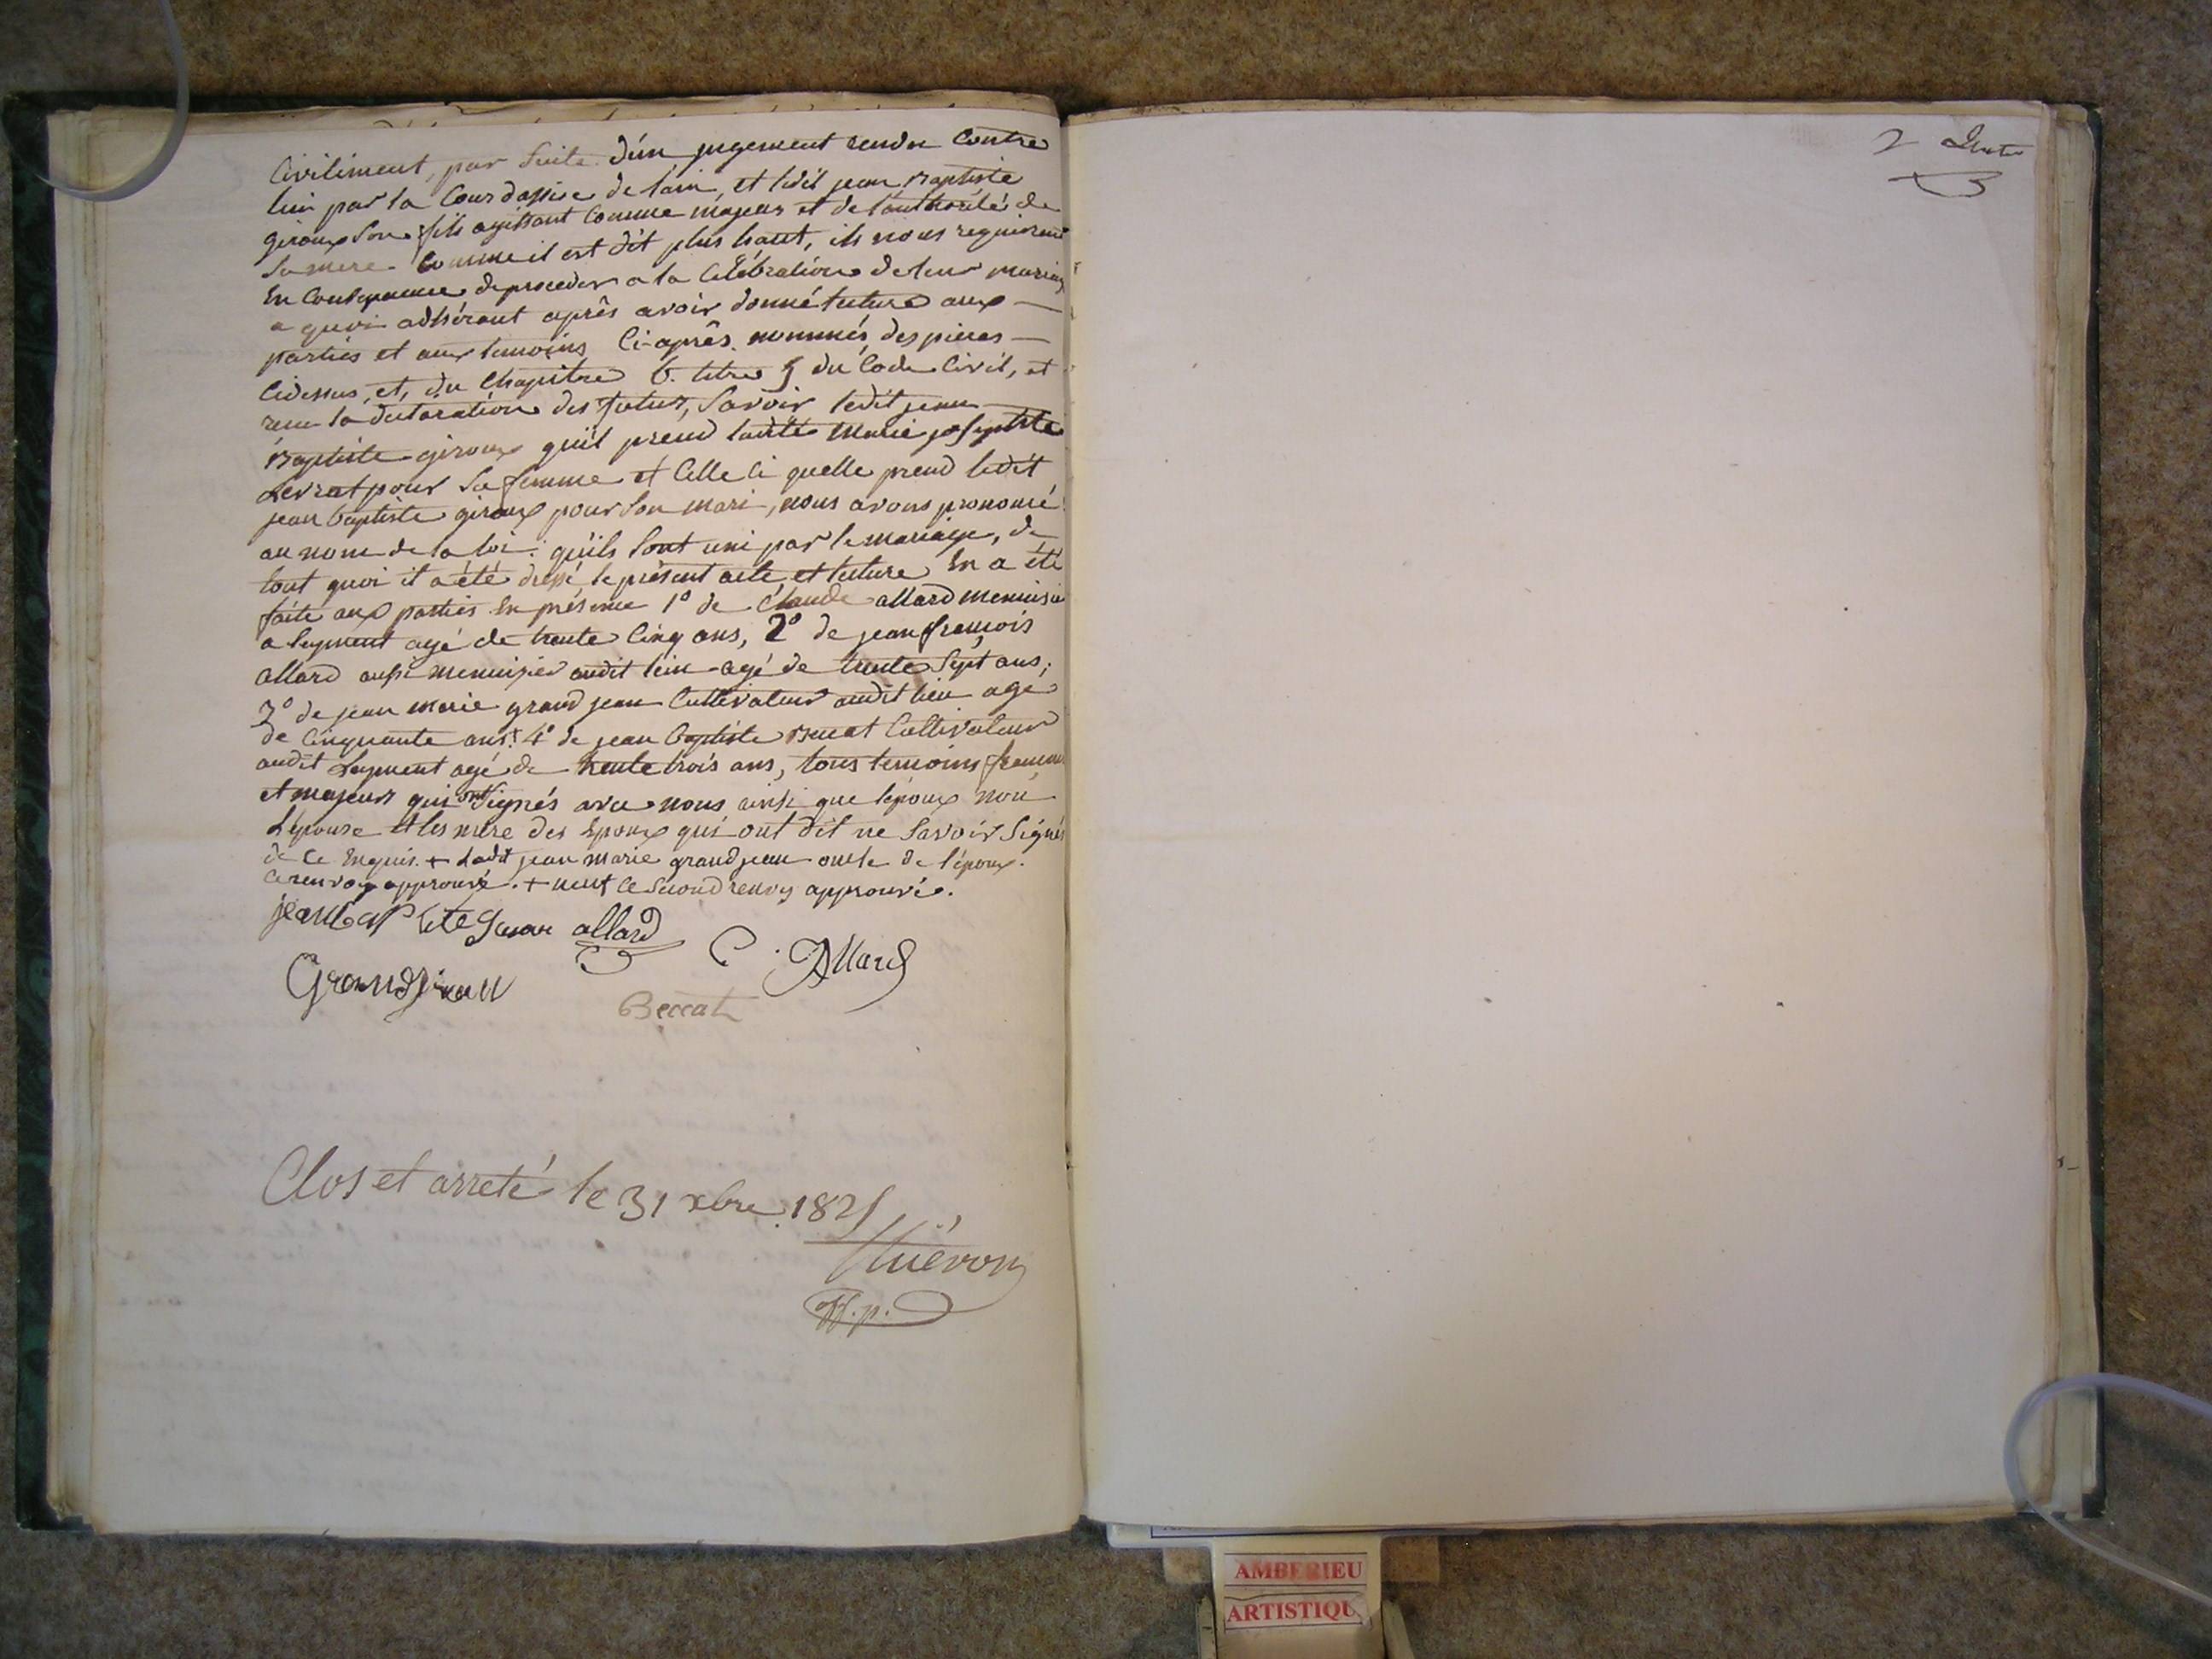 Civiliment, par Suite d'un jugement rendu Contre
lui par la Cour dassise de lain, et ledit jean Baptiste
giroux Son fils agissant Comme majeur et de l'authorité de
Sa mere. Comme il est dit plus haut, ils nous requierent
En Consequence de proceder a la Célébration de leur mariage
a quoi adhérant après avoir donné lecture aux
parties et aux temoins Ci-après nommés, des pieces
Cidessus, et, du Chapitre 6. titre 5 du Code Civil, et
recu la declaration des futurs, Savoir ledit jean
Baptiste giroux qu'il prend ladite Marie josephte
Levrat pour Sa femme et Celle Ci quelle prend ledit
jean baptiste giroux pour Son mari, nous avons prononcé
au nom de la loi: qu'ils Sont uni par le mariage, de
tout quoi il a été dressé le présent acte, et lecture En a été
faite aux parties En présence 1° de Claude allard menuisier
a Leyment agé de trente Cinq ans, 2° de jean françois
allard aussi menuisier audit lieu agé de trente Sept ans;
3° de jean marie grand jean Cultivateur audit lieu agé
de Cinquante ans + 4° de jean baptiste Beccat Cultivateur
audit Leyment agé de trente trois ans, tous temoins français
et majeurs qui ont Signés avec nous ainsi que lépoux non
L'épouse et les mère des Epoux qui ont dit ne Savoir Signés
de Ce Enquis. + Ledit jean marie grandjean oncle de l'époux.
Ce renvoy approuvé. + Ce Second renvoy approuvé.
jean baptiste allard
C. Allard
Grandjean
Beccat
Clos et arreté le 31 xbre 1825
Thiéron
2